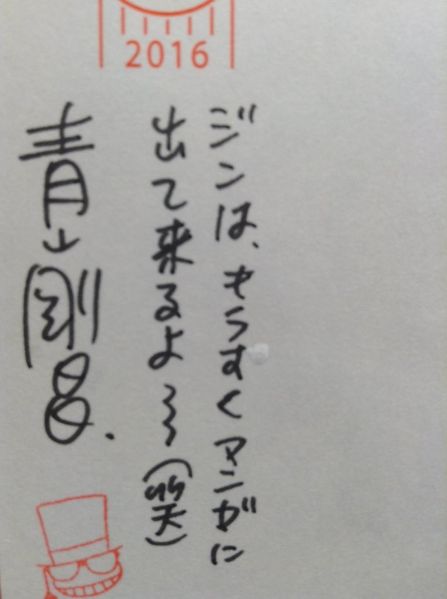 2016
ジンは、もうすぐマンガに
出て来るよ〜〜(笑)
青山剛昌.